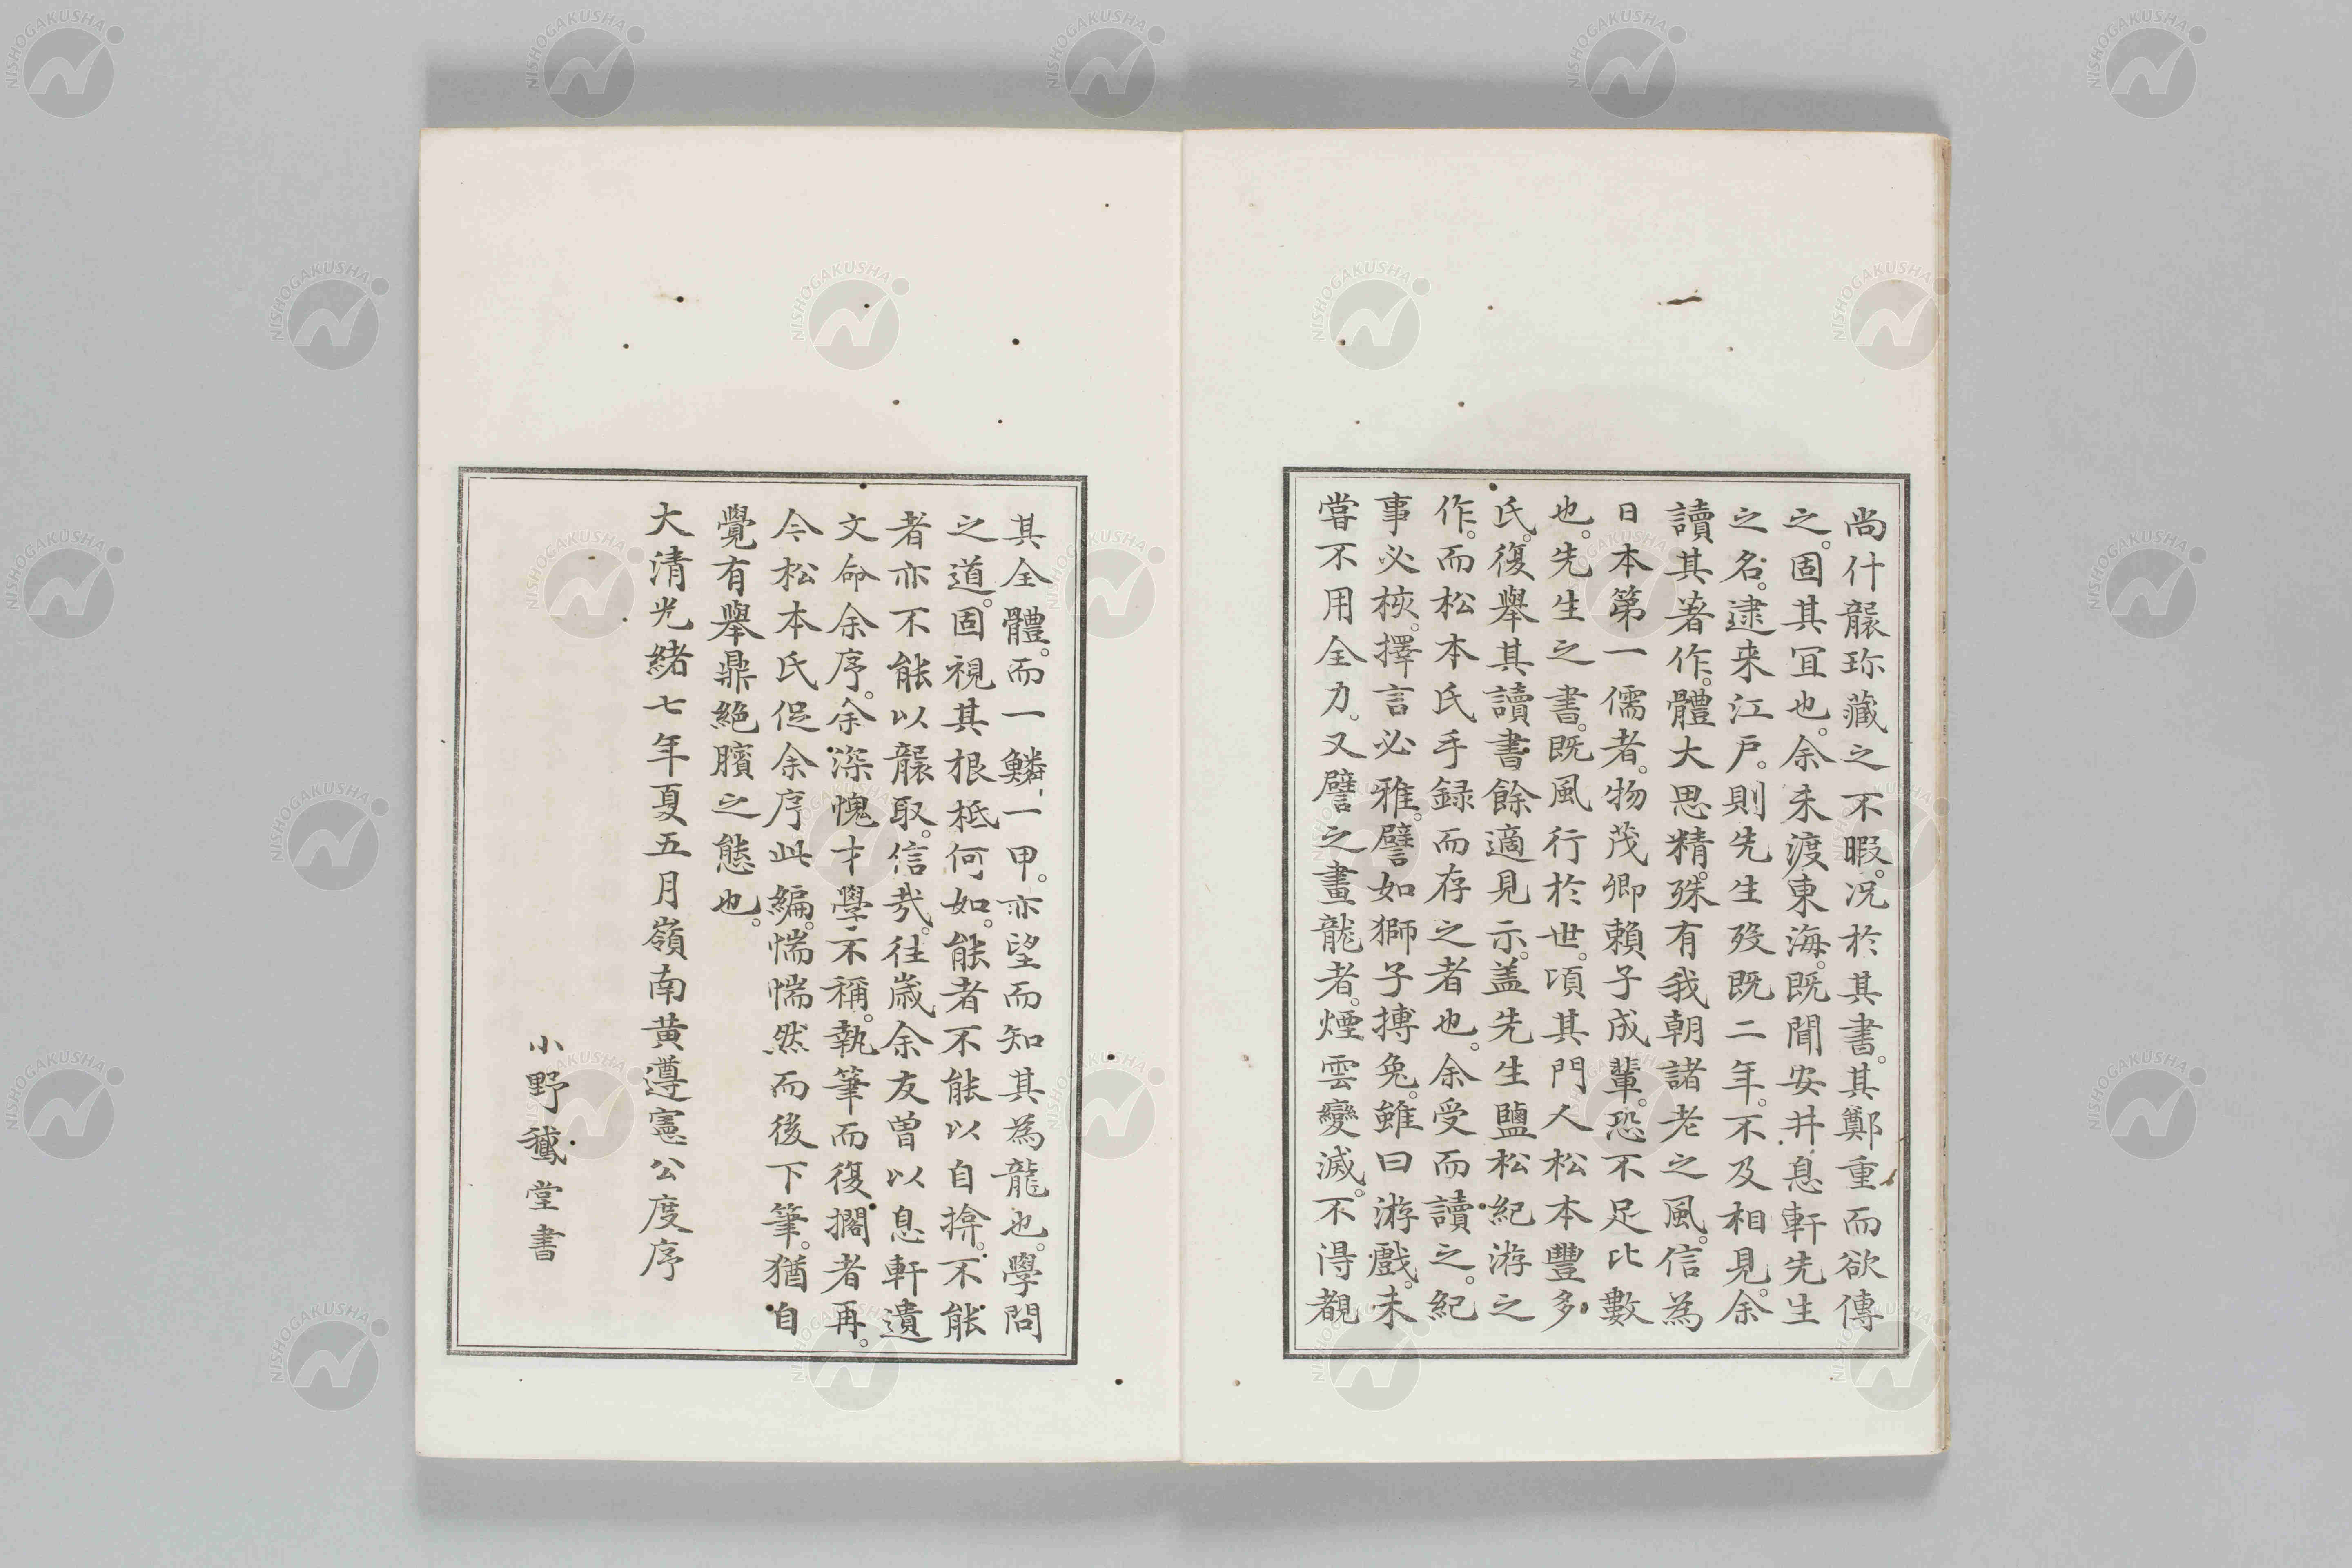 尚什襲珎藏之不暇。况於其書。其鄭重而欲傳
之。固其冝也。余未渡東海。既聞安井息軒先生
之名。逮来江戸。則先生歿既二年。不及相見。余
讀其著作。體大思精。殊有我朝諸老之風。信為
日本第一儒者。物茂卿賴子成輩。恐不足比數
也。先生之書。既風行於世。頃其門人松本豐多
氏。復舉其讀書餘適見示。盖先生鹽松紀游之
作。而松本氏手録而存之者也。余受而讀之。紀
事必核。擇言必雅。譬如獅子搏兔。雖曰游戲。未
嘗不用全力。又譬之畫龍者。煙雲變滅。不得覩
其全體。而一鱗一甲。亦望而知其為龍也。學問
之道。固視其根柢何如。能者不能以自揜。不能
者亦不能以襲取。信哉。往歲余友曽以息軒遺
文命余序。余深愧才學不稱。執筆而復擱者再。
今松本氏促余序此編。惴惴然而後下筆。猶自
覺有舉鼎絕臏之態也。
大清光緒七年夏五月嶺南黄遵憲公度序
小野鵞堂書
NISHOGAKUSHA